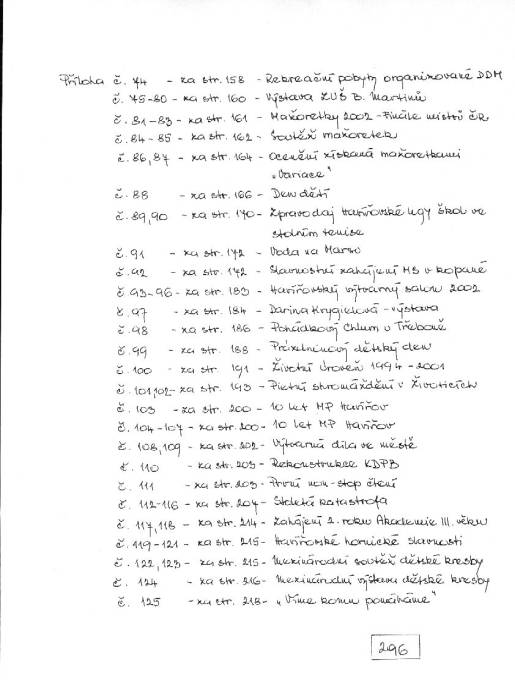 Příloha č. 74 - za str. 158 - Rekreační pobyty organizované DDM
č. 75-80 - za str. 160 - Výstava ZUŠ B. Martinů
č. 81-83 - za str. 161 - Mažoretky 2002 - Finále mistrů ČR
č. 84-85 - za str. 162 - Soutěž mažoretek
č. 86,87 - za str. 164 - Ocenění získaná mažoretkami
„Variace"
č. 88 - za str. 166 - Den dětí
č. 89,90 - za str. 170 - Zpravodaj Havířovské ligy škol ve
stolním tenise
č. 91 - za str. 172 - Voda na Marsu
č. 92 - za str. 172 - Slavnostní zahájení MS v kopané
č. 93-96 - za str. 183 - Havířovský výtvarný salon 2002
č. 97 - za str. 184 - Darina Krygielová - výstava
č. 98 - za str. 186 - Pohádkový Chlum u Třeboně
č. 99 - za str. 188 - Prázdninový dětský den
č. 100 - za str. 191 - Životní úroveň 1994 - 2001
č. 101,102 - za str. 193 - Pietní shromáždění v Životicích
č. 103 - za str. 200 - 10 let MP Havířov
č. 104-107 - za str. 200 - 10 let MP Havířov
č. 108,109 - za str. 202 - Výtvarná díla ve městě
č. 110 - za str. 203 - Rekonstrukce KDPB
č. 111 - za str. 203 - První non-stop čtení
č. 112-116 - za str. 207 - Stoletá katastrofa
č. 117,118 - za str. 214 - Zahájení 2. roku Akademie III. věku
č. 119-121 - za str. 215 - Havířovské hornické slavnosti
č. 122,123 - za str. 215 - Mezinárodní soutěž dětské kresby
č. 124 - za str. 216 - Mezinárodní výstava dětské kresby
č. 125 - za str. 218 - „Víme komu pomáháme"
296